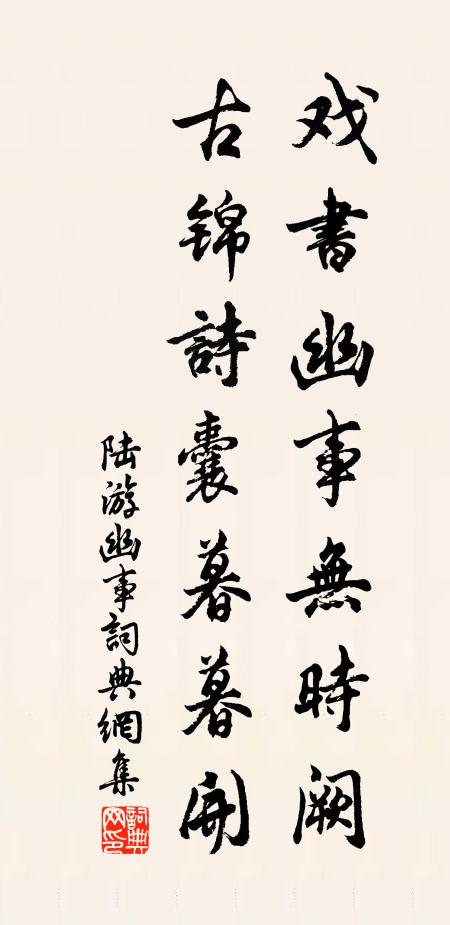 戏書幽事無時闕
古锦詩囊暮暮開
陆游幽事詞典網集
詞典